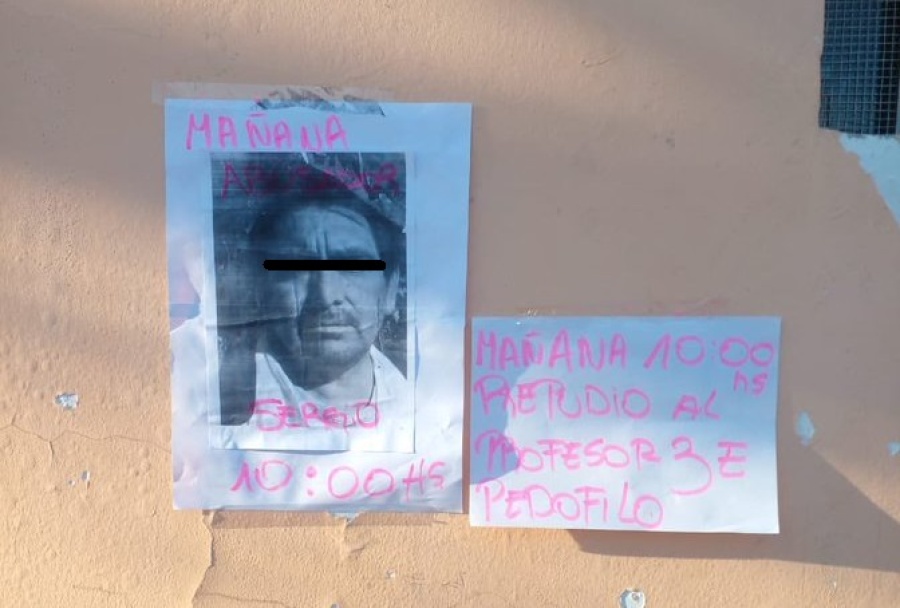 MAÑANA
SERGIO
10:00HS
MAÑANA 10:00
hs
REPUDIO AL
PROFESOR 3E
PEDOFILO